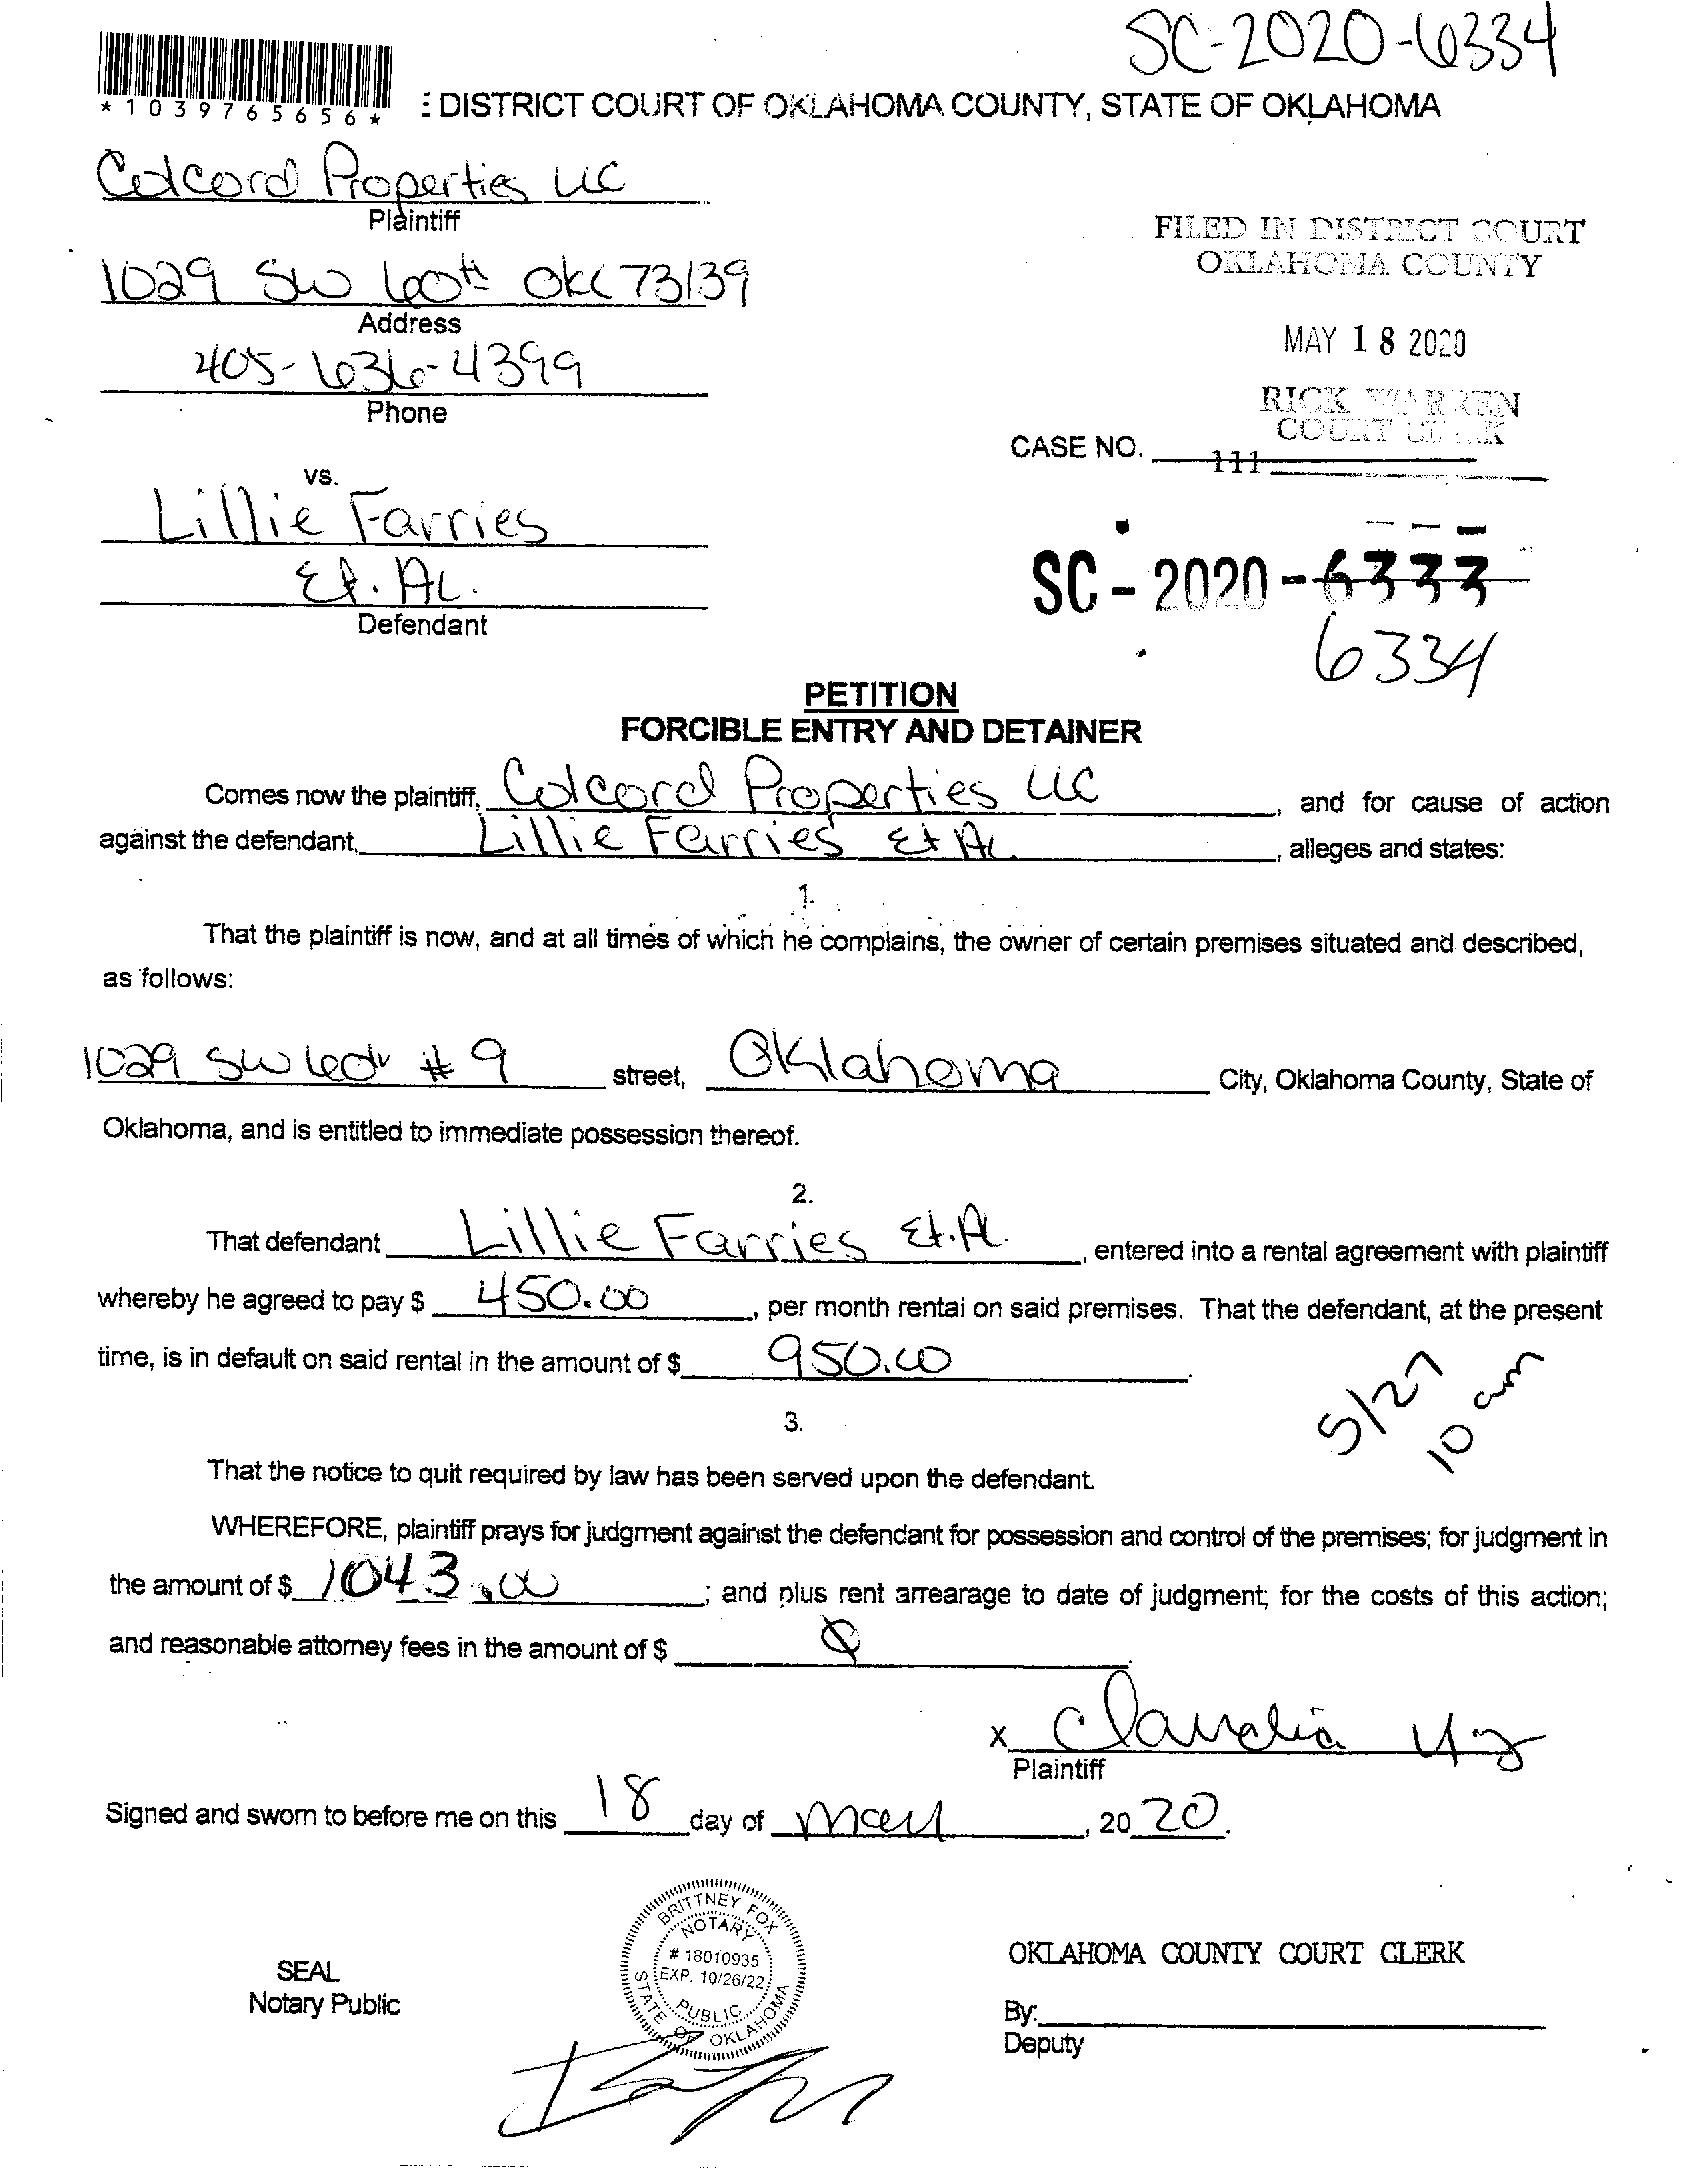 SC-2020-6334
*1039765656*
: DISTRICT COURT OF OKLAHOMA COUNTY, STATE OF OKLAHOMA
Colcord Properties LLC
Plaintiff
FILED IN DISTRICT COURT
OKLAHOMA COUNTY
1029 SW 60th OKC 73139
Address
MAY 18 2020
405-636-4399
Phone
RICK WARREN
COURT CLERK
CASE NO.
111
vs.
Lillie Farries
Et. AL.
Defendant
SC - 2020 - 6333
6334
PETITION
FORCIBLE ENTRY AND DETAINER
Comes now the plaintiff, Colcord Properties LLC, and for cause of action
against the defendant, Lillie Farries Et AL, alleges and states:
1.
That the plaintiff is now, and at all times of which he complains, the owner of certain premises situated and described,
as follows:
1029 SW 60th # 9 street, Oklahoma City, Oklahoma County, State of
Oklahoma, and is entitled to immediate possession thereof.
2.
That defendant Lillie Farries Et. AL., entered into a rental agreement with plaintiff
whereby he agreed to pay $ 450.00, per month rental on said premises. That the defendant, at the present
time, is in default on said rental in the amount of $ 950.00.
5/27
10 am
3.
That the notice to quit required by law has been served upon the defendant.
WHEREFORE, plaintiff prays for judgment against the defendant for possession and control of the premises; for judgment in
the amount of $ 1043.00; and plus rent arrearage to date of judgment; for the costs of this action;
and reasonable attorney fees in the amount of $ 0.
x Claudia
Plaintiff
Signed and sworn to before me on this 18 day of May, 2020.
BRITTNEY FOX
NOTARY
# 18010935
EXP. 10/26/22
PUBLIC
STATE OF OKLAHOMA
SEAL
Notary Public
OKLAHOMA COUNTY COURT CLERK
By:
Deputy